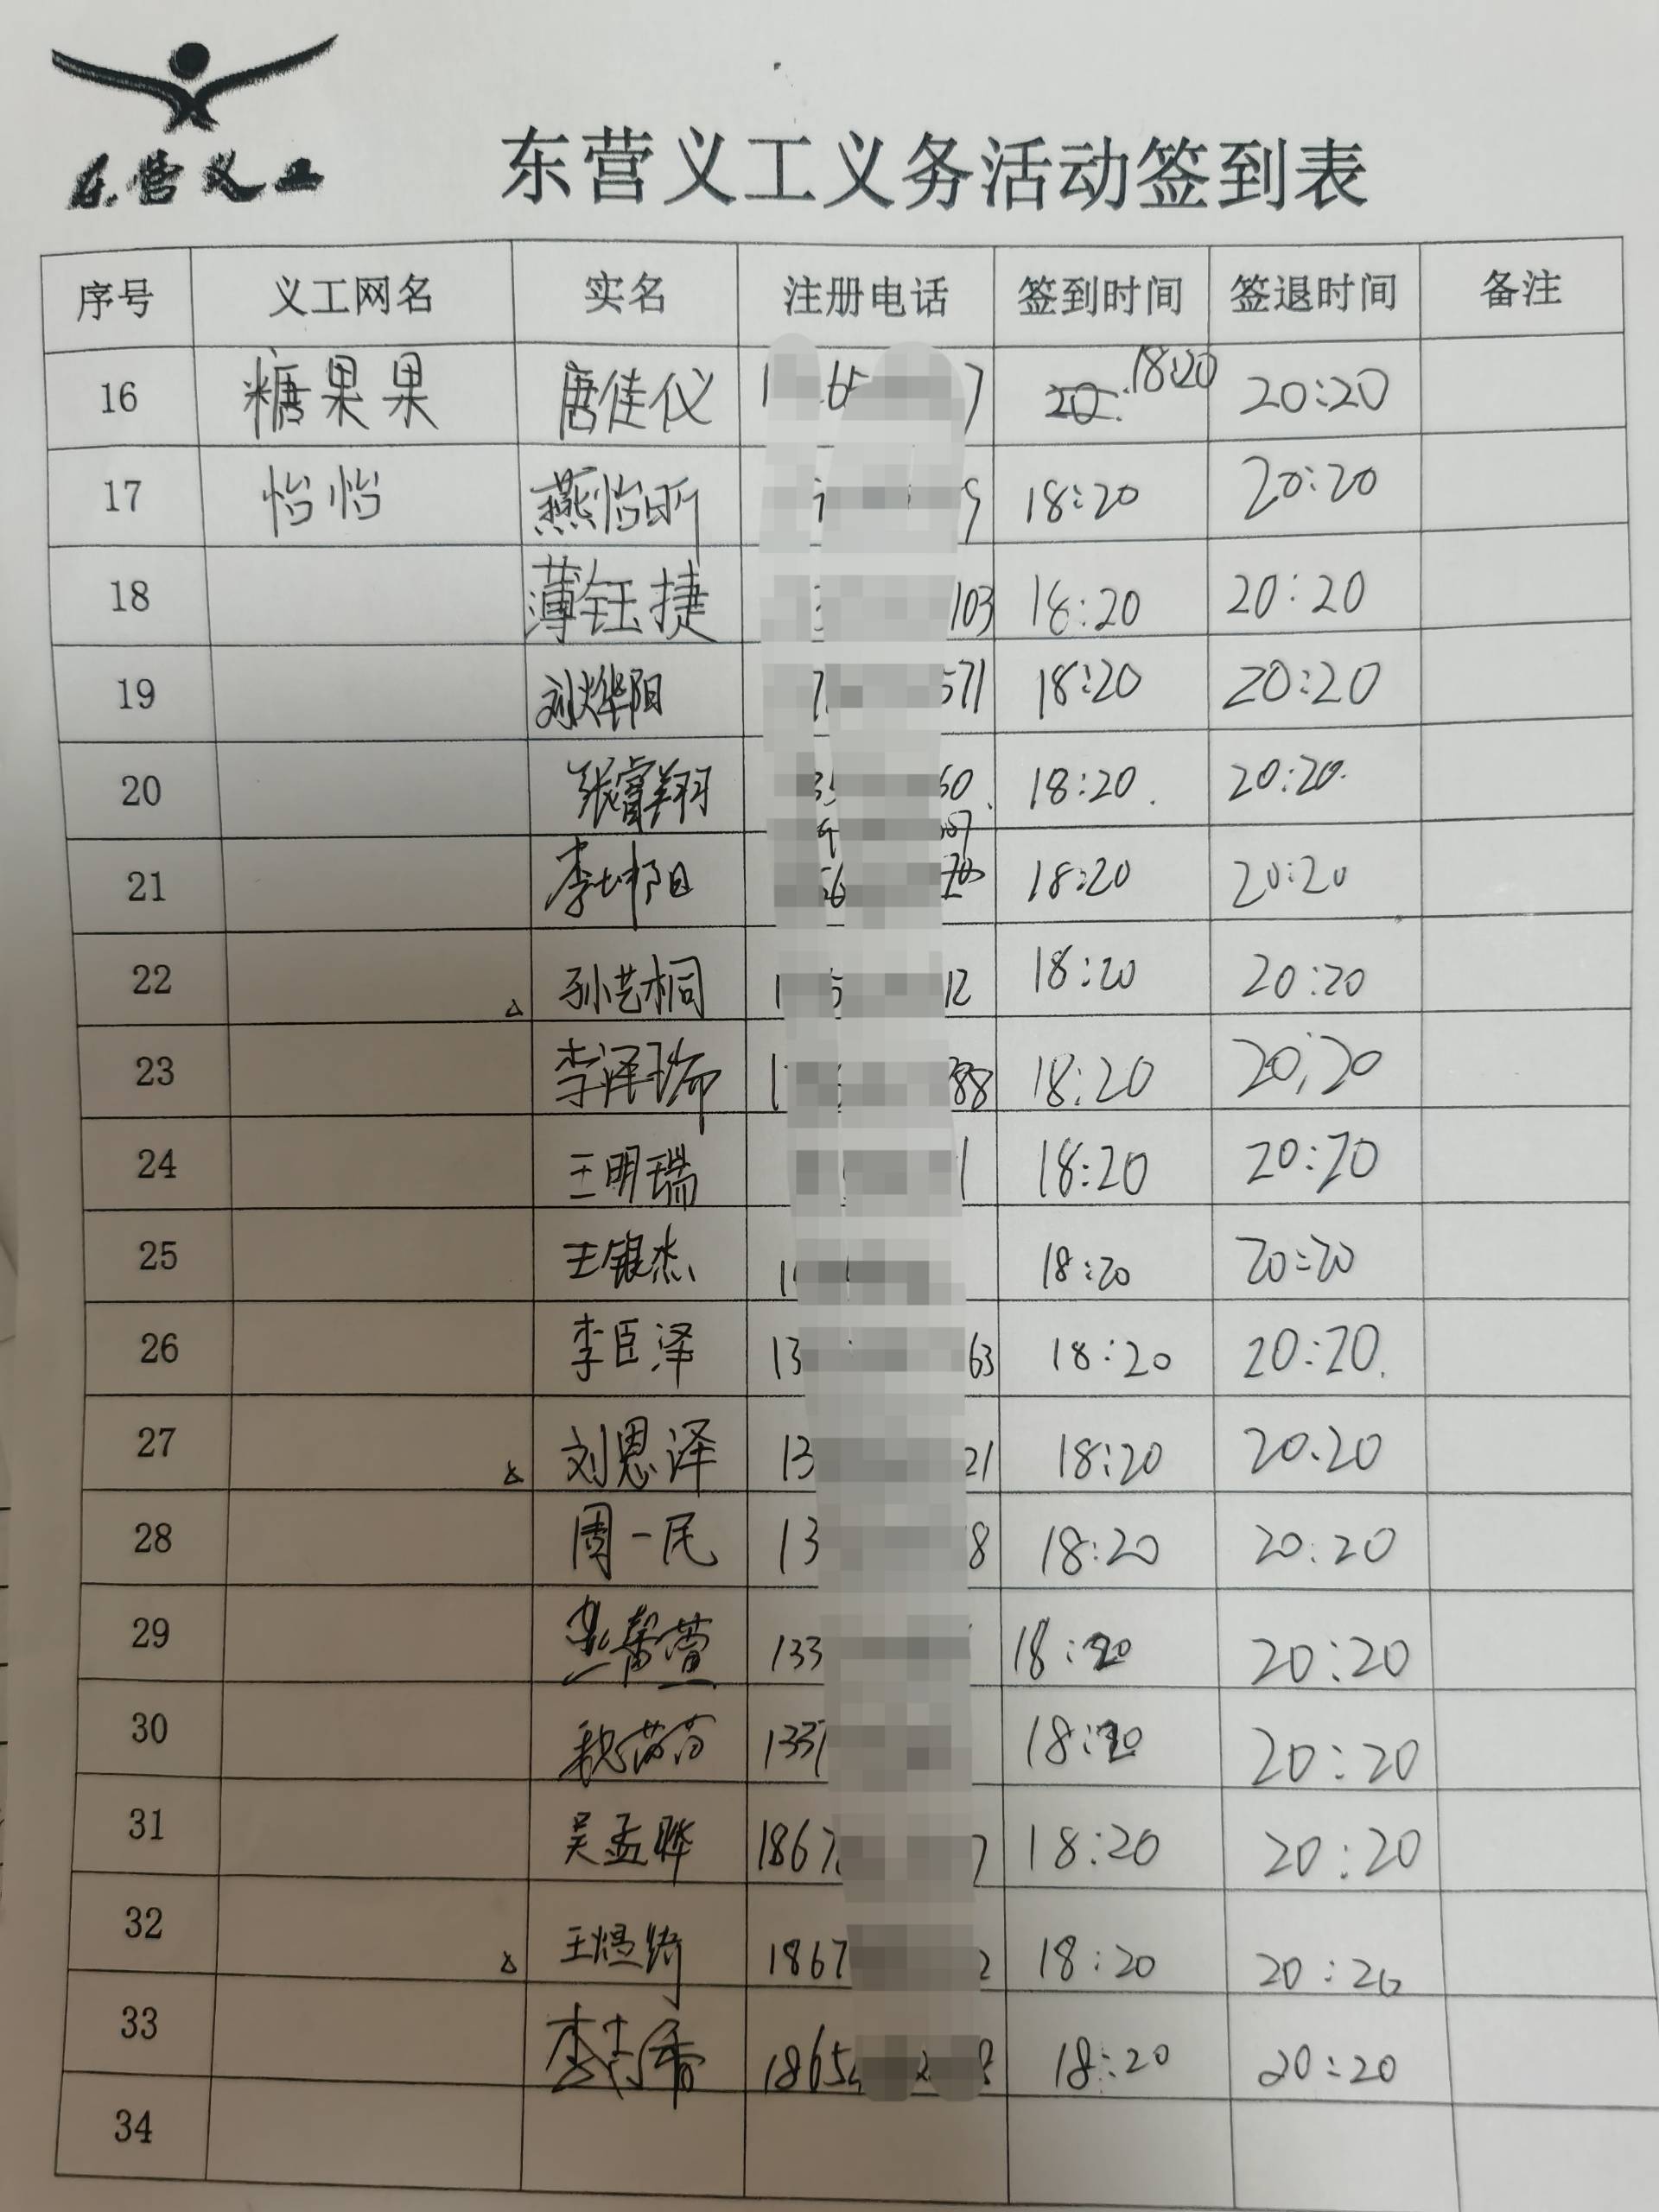 东营义工
东营义工义务活动签到表
序号 义工网名 实名 注册电话 签到时间 签退时间 备注
16 糖果果 唐佳仪 18:20 20:20
17 怡怡 燕怡昕 18:20 20:20
18 薄钰捷 103 18:20 20:20
19 刘烨阳 571 18:20 20:20
20 张睿翔 60 18:20. 20:20.
21 李坤阳 18:20 20:20
22 孙艺桐 12 18:20 20:20
23 李泽瑞 88 18:20 20:20
24 王明瑞 1 18:20 20:20
25 王银杰 18:20 20:20
26 李臣泽 13 63 18:20 20:20.
27 刘恩泽 13 21 18:20 20:20
28 周一民 13 8 18:20 20:20
29 133 18:20 20:20
30 133 18:20 20:20
31 吴孟晔 1867 7 18:20 20:20
32 1867 2 18:20 20:20
33 1865 18:20 20:20
34